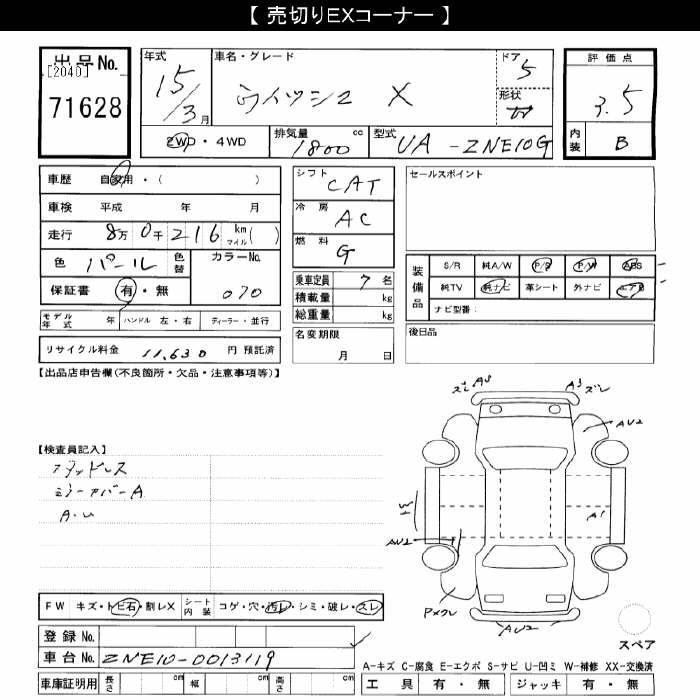 【 売切りEXコーナー 】
出品No.
[2040]
71628
年式 15/3月
車名・グレード
ウィッシュ X
ドア 5
形状 W
評価点
3.5
内装 B
2WD・4WD
排気量 1800 cc
型式 UA-ZNE10G
車歴 自家用・( )
車検 平成 年 月
走行 8万 0千 216 km マイル( )
色 パール 色替 カラーNo. 070
保証書 有・無
モデル年式 年 ハンドル 左・右 ディーラー・並行
リサイクル料金 11,630 円 預託済
シフト CAT
冷房 AC
燃料 G
乗車定員 7 名
積載量 kg
総重量 kg
名変期限 月 日
セールスポイント
装備品 S/R 純A/W P/S P/W ABS
純TV 純ナビ 革シート 外ナビ エアB
ナビ型番:
後日品
【出品店申告欄(不良箇所・欠品・注意事項等)】
【検査員記入】
スタッドレス
ミラーカバーA
A.U
ズレ A3
A3 ズレ
AU2
A1
AU2
AU2
スペア
FW キズ・トビ石・割レX シート内装 コゲ・穴・汚レ・シミ・破レ・スレ
登録No.
車台No. ZNE10-0013119
車庫証明用 長さ cm 幅 cm 高さ cm
A-キズ C-腐食 E-エクボ S-サビ U-凹ミ W-補修 XX-交換済
工具 有・無 ジャッキ 有・無